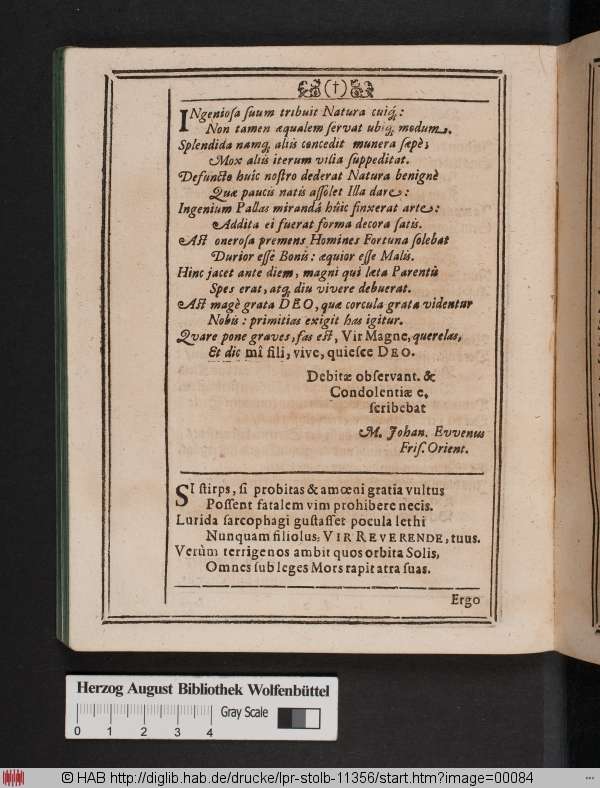 (†)
INgenioſa ſuum tribuit Natura cuiq́;:
Non tamen æqualem ſervat ubiq; modum.
Splendida namq; aliis concedit munera ſæpè;
Mox aliis iterum vilia ſuppeditat.
Defuncto huic noſtro dederat Natura benignè
Quæ paucis natis aſſolet Illa dare:
Ingenium Pallas mirandâ huic finxerat arte:
Addita ei fuerat forma decora ſatis.
Aſt oneroſa premens Homines Fortuna ſolebat
Durior eſſe Bonis: æquior eſſe Malis.
Hinc jacet ante diem, magni qui læta Parentû
Spes erat, atq; diu vivere debuerat.
Aſt magè grata DEO, quæ corcula grata videntur
Nobis: primitias exigit has igitur.
Qvare pone graves, fas eſt, Vir Magne, querelas,
Et dic mî fili, vive, quieſce DEO.
Debitæ obſervant. &
Condolentiæ e.
ſcribebat
M. Johan. Evvenus
Friſ. Orient.
SI ſtirps, ſi probitas & amœni gratia vultus
Poſſent fatalem vim prohibere necis.
Lurida ſarcophagi guſtaſſet pocula lethi
Nunquam filiolus, VIR REVERENDE, tuus.
Verùm terrigenos ambit quos orbita Solis,
Omnes ſub leges Mors rapit atra ſuas.
Ergo
Herzog August Bibliothek Wolfenbüttel
Gray Scale
0 1 2 3 4
© HAB http://diglib.hab.de/drucke/lpr-stolb-11356/start.htm?image=00084